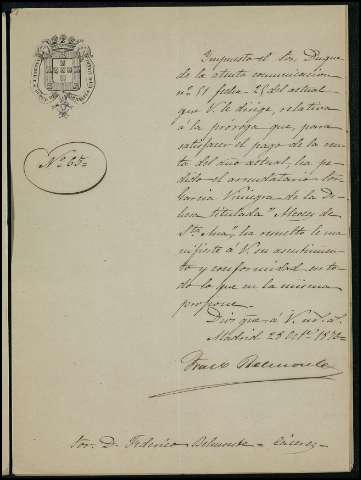 Nº 65=
Impuesto el Sor. Duque
de la atenta comunicacion
nº 51 fecha 25 del actual
que V. le dirige, relativa
á la próroga que, para
satisfacer el pago de la ren-
ta del año actual, ha pe-
dido el arrendatario Sor.
Garcia Viniegra de la De-
hesa titulada "Alcores de
Sta. Ana", ha resuelto le ma-
nifieste á V. su asentimien-
to y conformidad en to-
do lo que en la misma
propone.
Dios gue. á V. ms. as.
Madrid 28 Oct.e 1870=
Belmonte
Sor. D. Federico Belmonte = Cáceres=